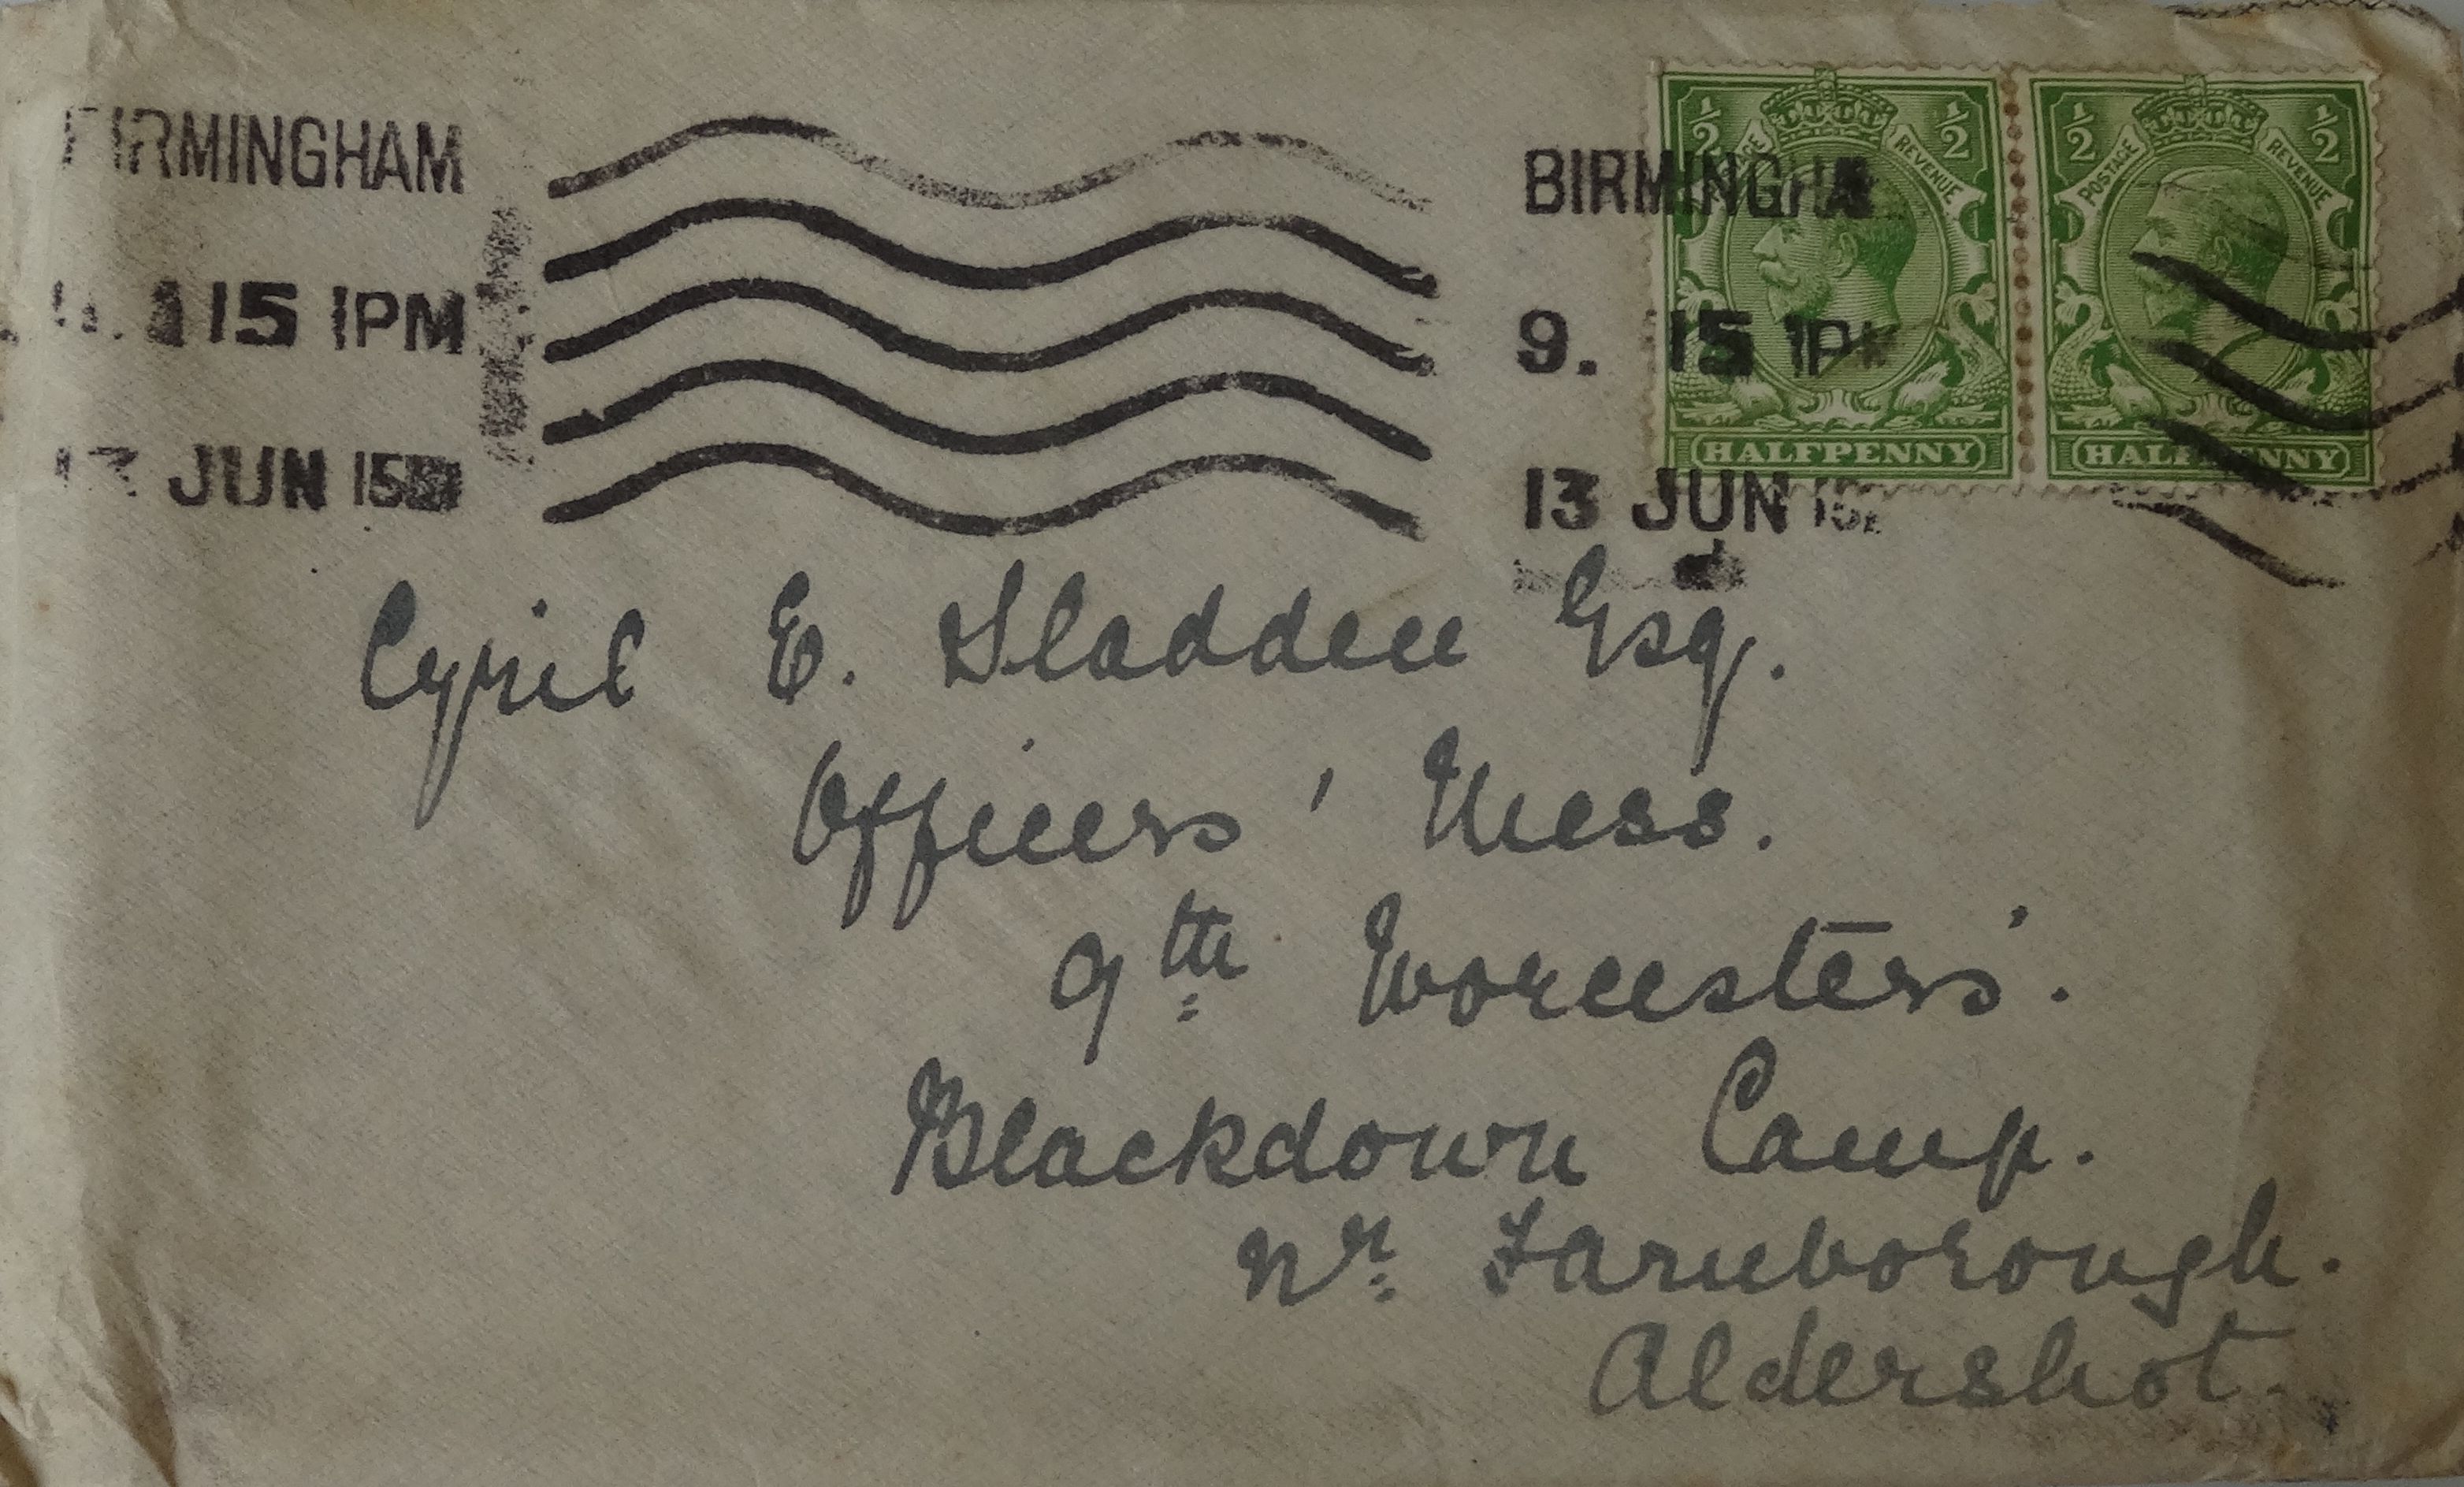 BIRMINGHAM
15 1PM
13 JUN 15
BIRMINGHA
9. 15 1PM
13 JUN 15
½ ½
POSTAGE REVENUE
HALFPENNY
½ ½
POSTAGE REVENUE
HALFPENNY
Cyril E. Sladden Esq.
Officers' Mess.
9th Worcesters'.
Blackdown Camp.
Nr. Farnborough.
Aldershot.